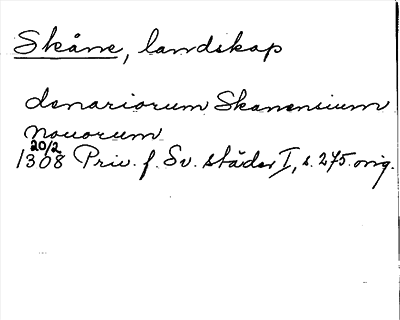 Skåne, landskap
denariorum Skanensium
nouorum
20/2
1308 Priv. f. Sv. städer I, s. 275. orig.